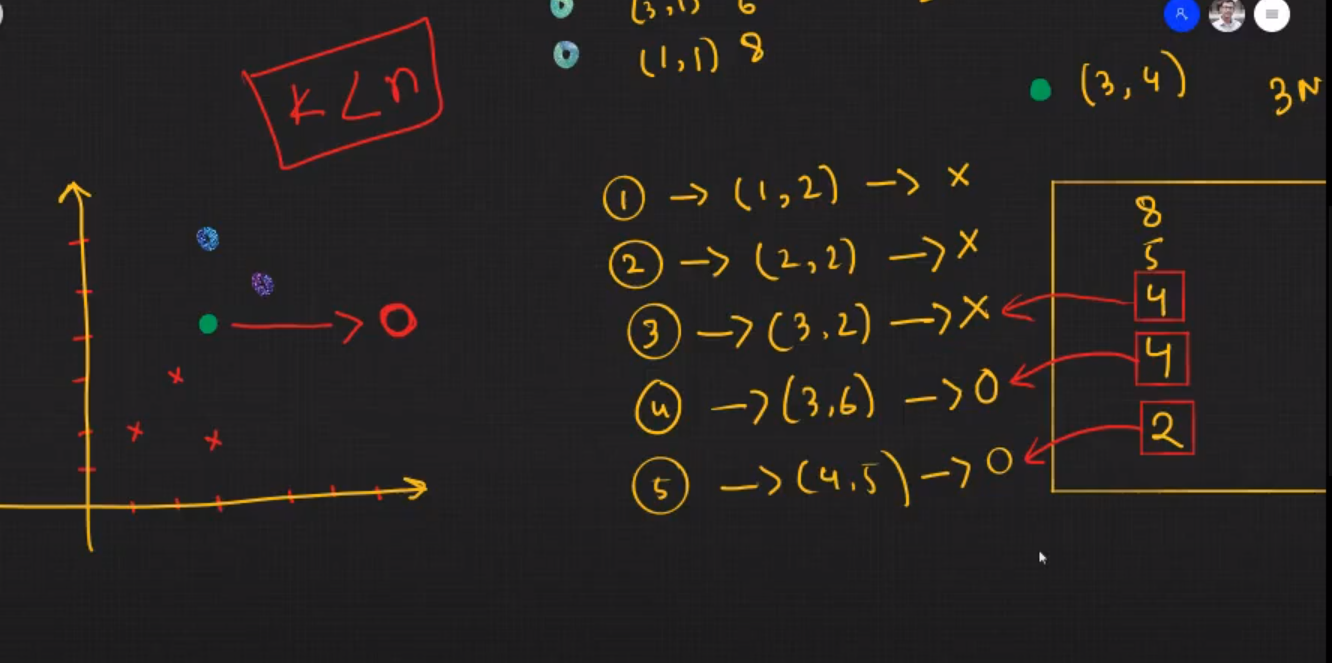 (3,1) 6
(1,1) 8
k < n
(3,4) 3N
① → (1,2) → x
② → (2,2) → x
③ → (3,2) → x
④ → (3,6) → O
⑤ → (4,5) → O
8
5
4
4
2